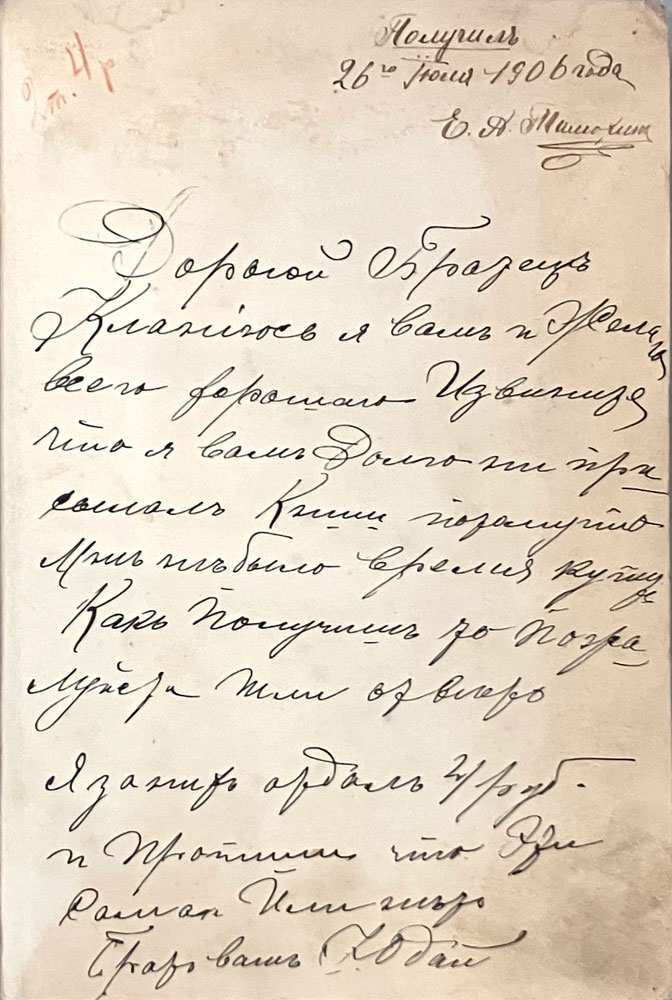 2 т. 4 р
Получилъ
26го Іюля 1906 года
Е. А.
Дорогой Братецъ
Кланіюсь я вамъ и Желаю
всего хорошаго Извините
что я вамъ Долго ни при
сылалъ Книги потамучто
Мнѣ нѣбыло время купить
Какъ Получишъ то Пожа
луйста Шли отвѣтъ
Я за нихъ отдалъ 4 руб.
и Пропиши что Эти
самыи Или нѣтъ
Братъ вашъ